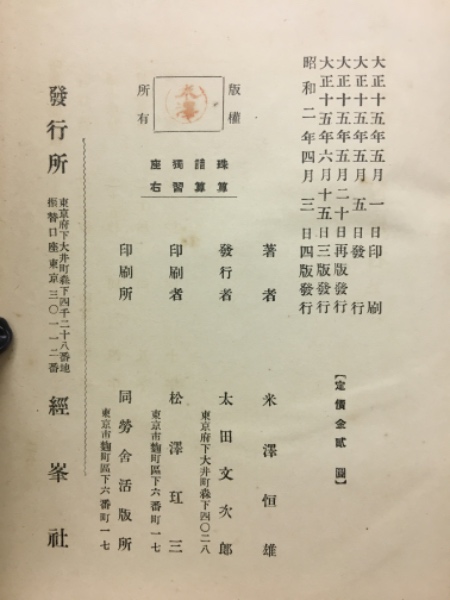 大正十五年五月一日印刷
大正十五年五月五日發行
大正十五年五月二十日再版發行
大正十五年六月十五日三版發行
昭和二年四月三日四版發行
【定價金貳圓】
版權
所有
珠算
諳算
獨習
座右
著者 米澤恒雄
發行者 太田文次郎
東京府下大井町森下四〇二八
印刷者 松澤玨三
東京市麴町區下六番町一七
印刷所 同勞舍活版所
東京市麴町區下六番町一七
發行所 經峯社
東京府下大井町森下四千二十八番地
振替口座東京三〇一一二番